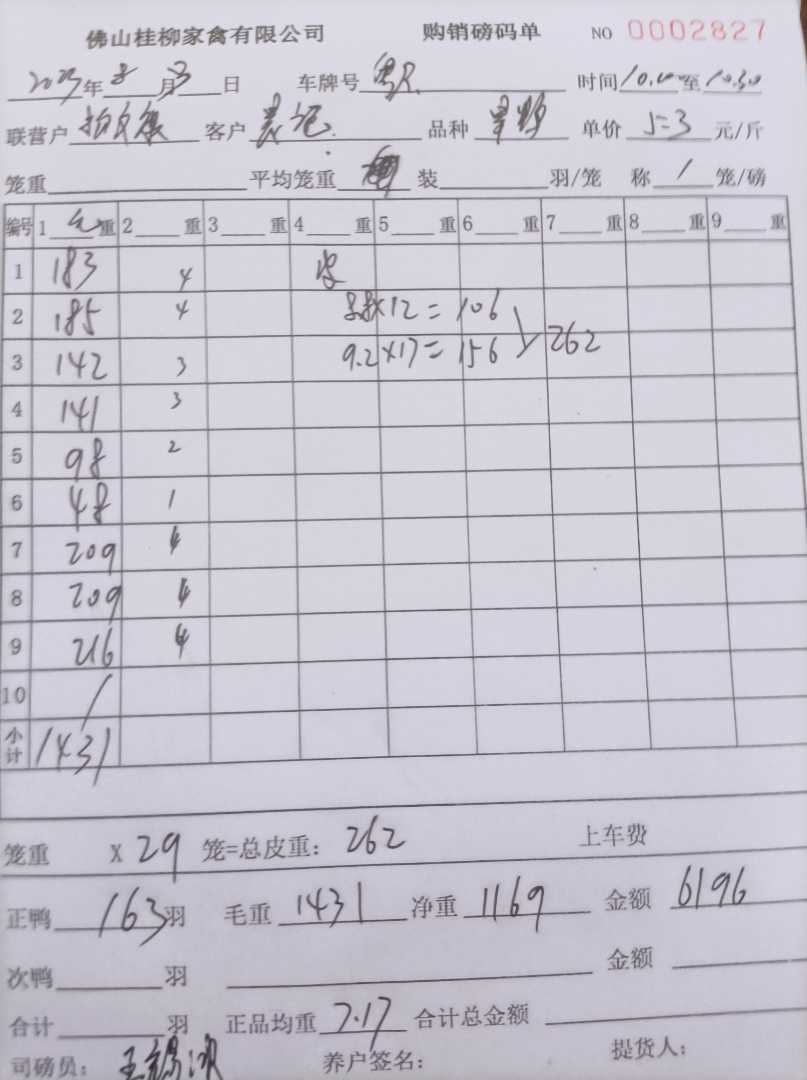 佛山桂柳家禽有限公司 购销磅码单 NO 0002827
2023年8月3日 车牌号 时间10.00至10.30
联营户 客户 品种 单价 5=3 元/斤
笼重 平均笼重 装 羽/笼 称 1 笼/磅
编号 1 重 2 重 3 重 4 重 5 重 6 重 7 重 8 重 9 重
1 183 4 皮
2 185 4 8.8×12=106
3 142 3 9.2×17=156 262
4 141 3
5 98 2
6 48 1
7 209 4
8 209 4
9 216 4
10 /
小计 1431
笼重 X 29 笼=总皮重: 262 上车费
正鸭 163 羽 毛重 1431 净重 1169 金额 6196
次鸭 羽 金额
合计 羽 正品均重 7.17 合计总金额
司磅员: 养户签名: 提货人: